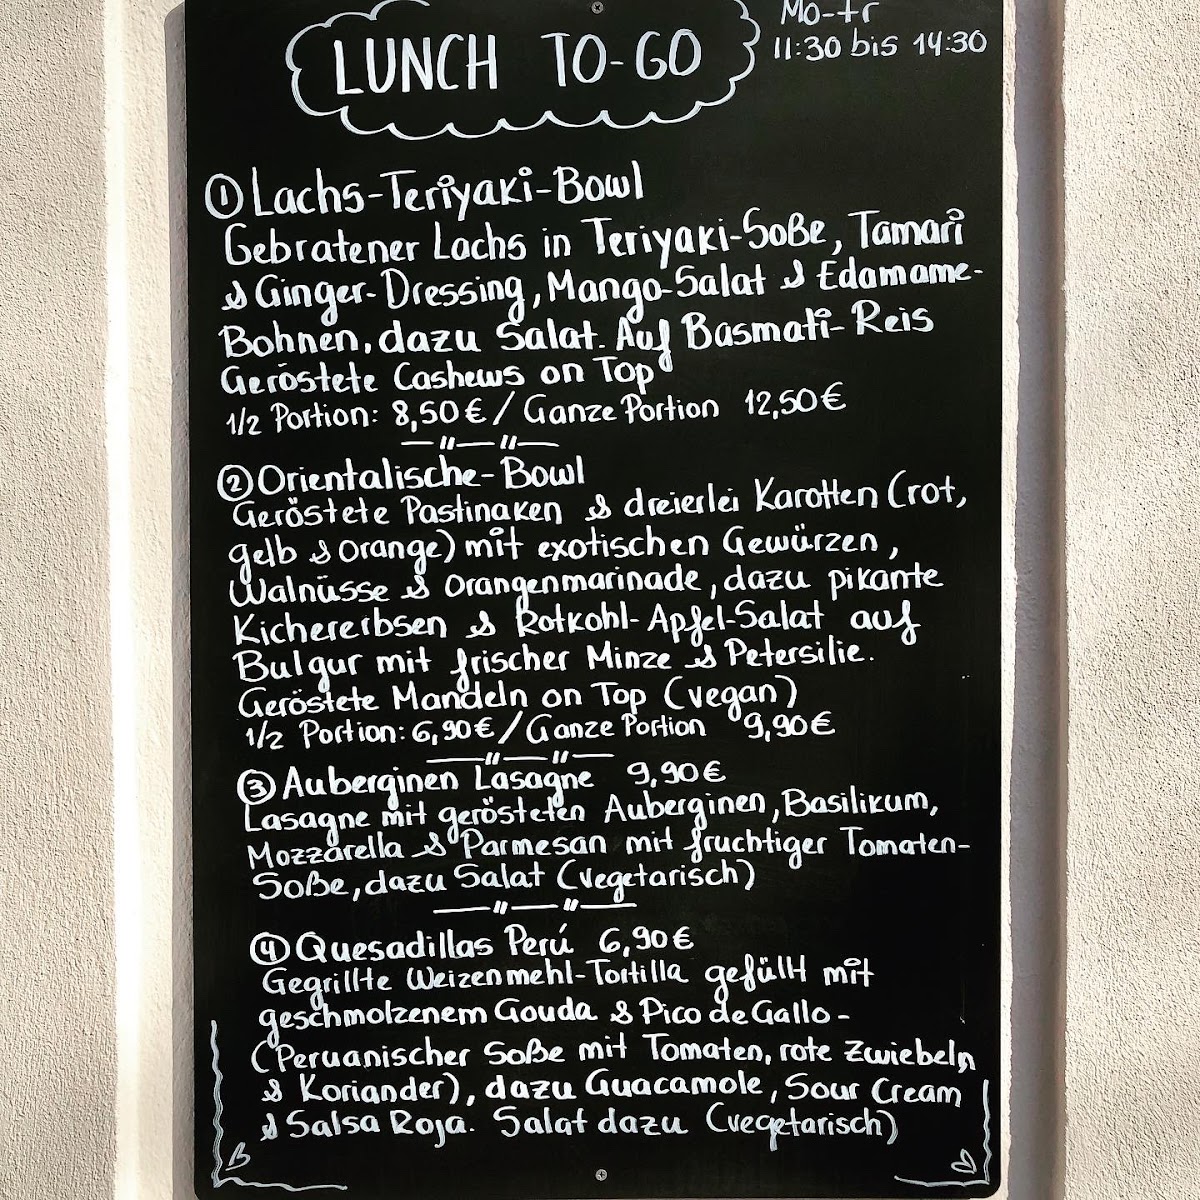 LUNCH TO-GO
Mo-Fr
11:30 bis 14:30
① Lachs-Teriyaki-Bowl
Gebratener Lachs in Teriyaki-Soße, Tamari
& Ginger-Dressing, Mango-Salat & Edamame-
Bohnen, dazu Salat. Auf Basmati-Reis
Geröstete Cashews on Top
1/2 Portion: 8,50€ / Ganze Portion 12,50€
② Orientalische-Bowl
Geröstete Pastinaken & dreierlei Karotten (rot,
gelb & orange) mit exotischen Gewürzen,
Walnüsse & Orangenmarinade, dazu pikante
Kichererbsen & Rotkohl-Apfel-Salat auf
Bulgur mit frischer Minze & Petersilie.
Geröstete Mandeln on Top (vegan)
1/2 Portion: 6,90€ / Ganze Portion 9,90€
③ Auberginen Lasagne 9,90€
Lasagne mit gerösteten Auberginen, Basilikum,
Mozzarella & Parmesan mit fruchtiger Tomaten-
Soße, dazu Salat (vegetarisch)
④ Quesadillas Perú 6,90€
Gegrillte Weizenmehl-Tortilla gefüllt mit
geschmolzenem Gouda & Pico de Gallo -
(Peruanischer Soße mit Tomaten, rote Zwiebeln,
& Koriander), dazu Guacamole, Sour Cream
& Salsa Roja. Salat dazu (vegetarisch)